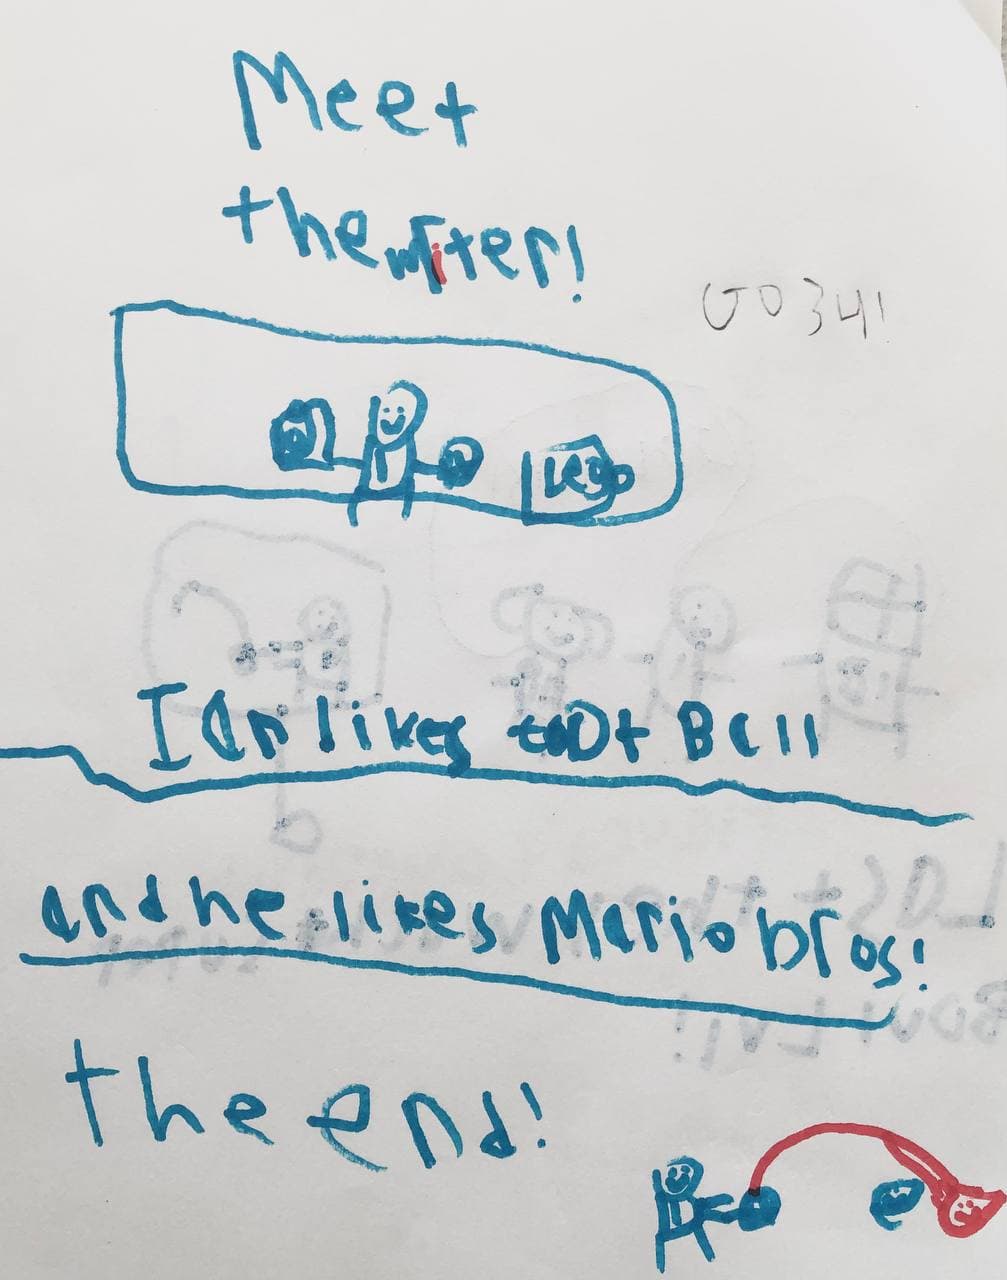 Meet
the writer!
GO341
Lego
Ian likes Dot Ball
and he likes Mario bros!
the end!